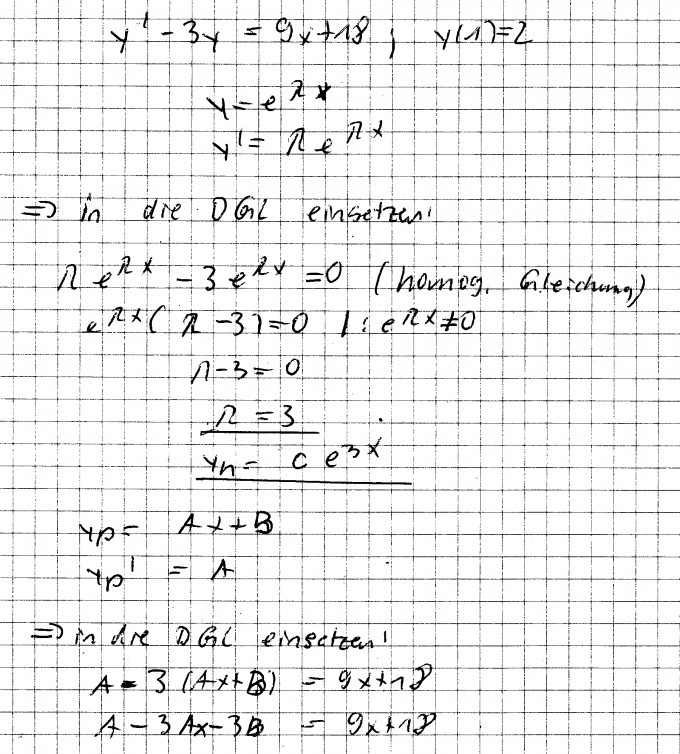 y' - 3y = 9x+18 ; y(1)=2
y = e^{λx}
y' = λ e^{λx}
=> in die DGL einsetzen:
λ e^{λx} - 3 e^{λx} = 0 (homog. Gleichung)
e^{λx} ( λ - 3) = 0 | : e^{λx} ≠ 0
λ - 3 = 0
λ = 3
yh = C e^{3x}
yp = Ax+B
yp' = A
=> in die DGL einsetzen!
A - 3 (Ax+B) = 9x+18
A - 3Ax - 3B = 9x+18